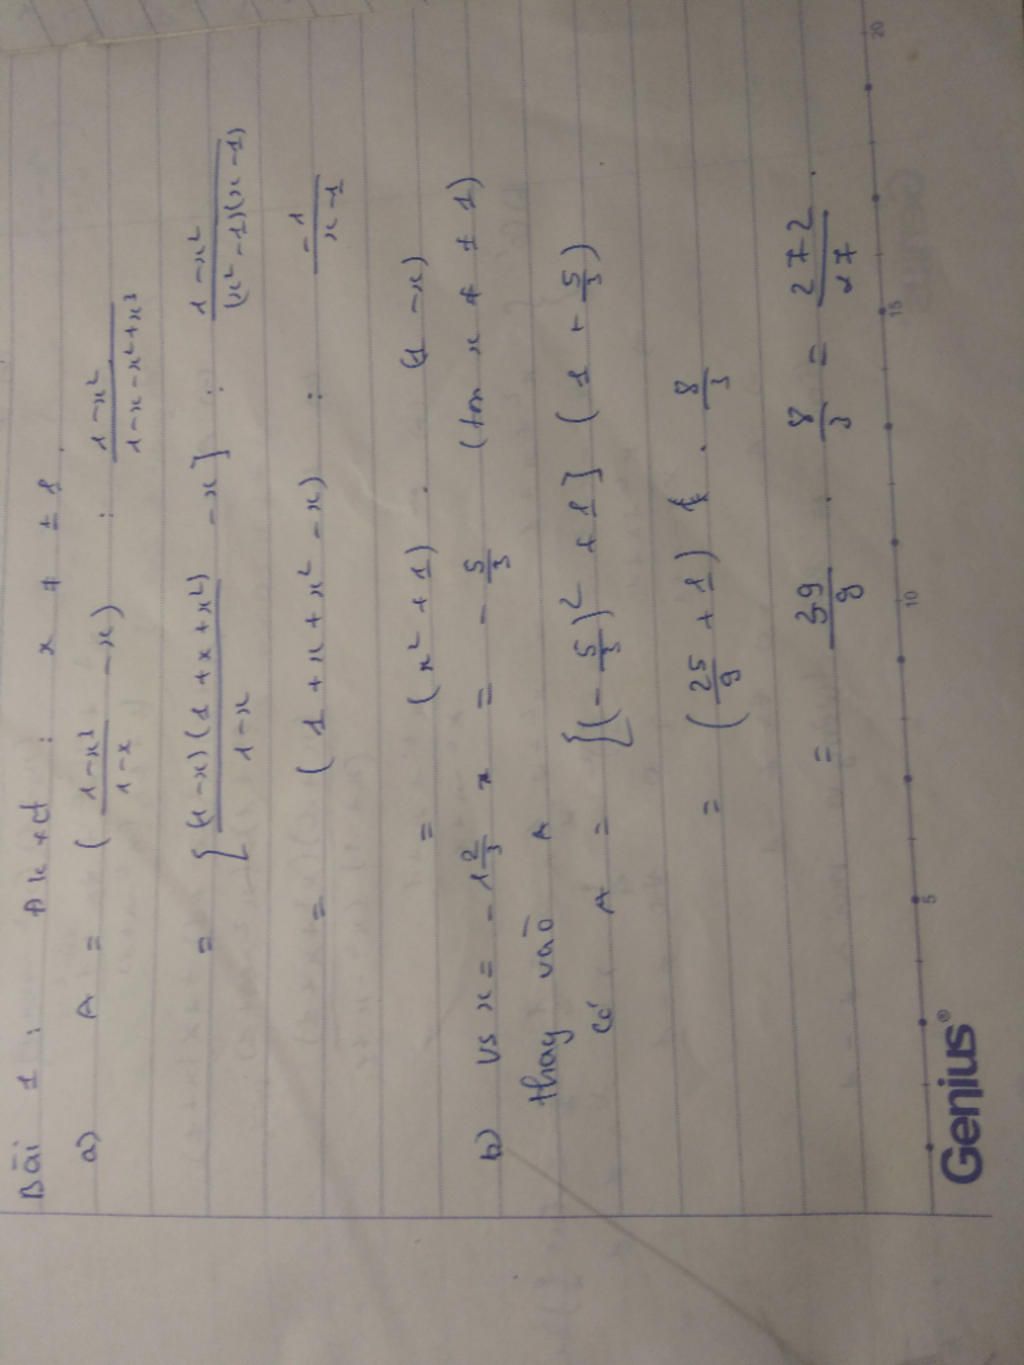 Bài 1: Đkxđ: x ≠ ±1.
a) A = (\frac{1-x³}{1-x} - x) : \frac{1-x²}{1-x-x²+x³}
= [\frac{(1-x)(1+x+x²)}{1-x} - x] : \frac{1-x²}{(x²-1)(x-1)}
= (1+x+x²-x) : \frac{-1}{x-1}
= (x²+1) . (1-x)
b) vs x = -1\frac{2}{3} x = -\frac{5}{3} (tm x ≠ ±1)
thay vào A
có A = [(-\frac{5}{3})² + 1] (1 + \frac{5}{3})
= (\frac{25}{9} + 1) . \frac{8}{3}
= \frac{39}{9} . \frac{8}{3} = \frac{272}{27}.
5 10 15 20
Genius®